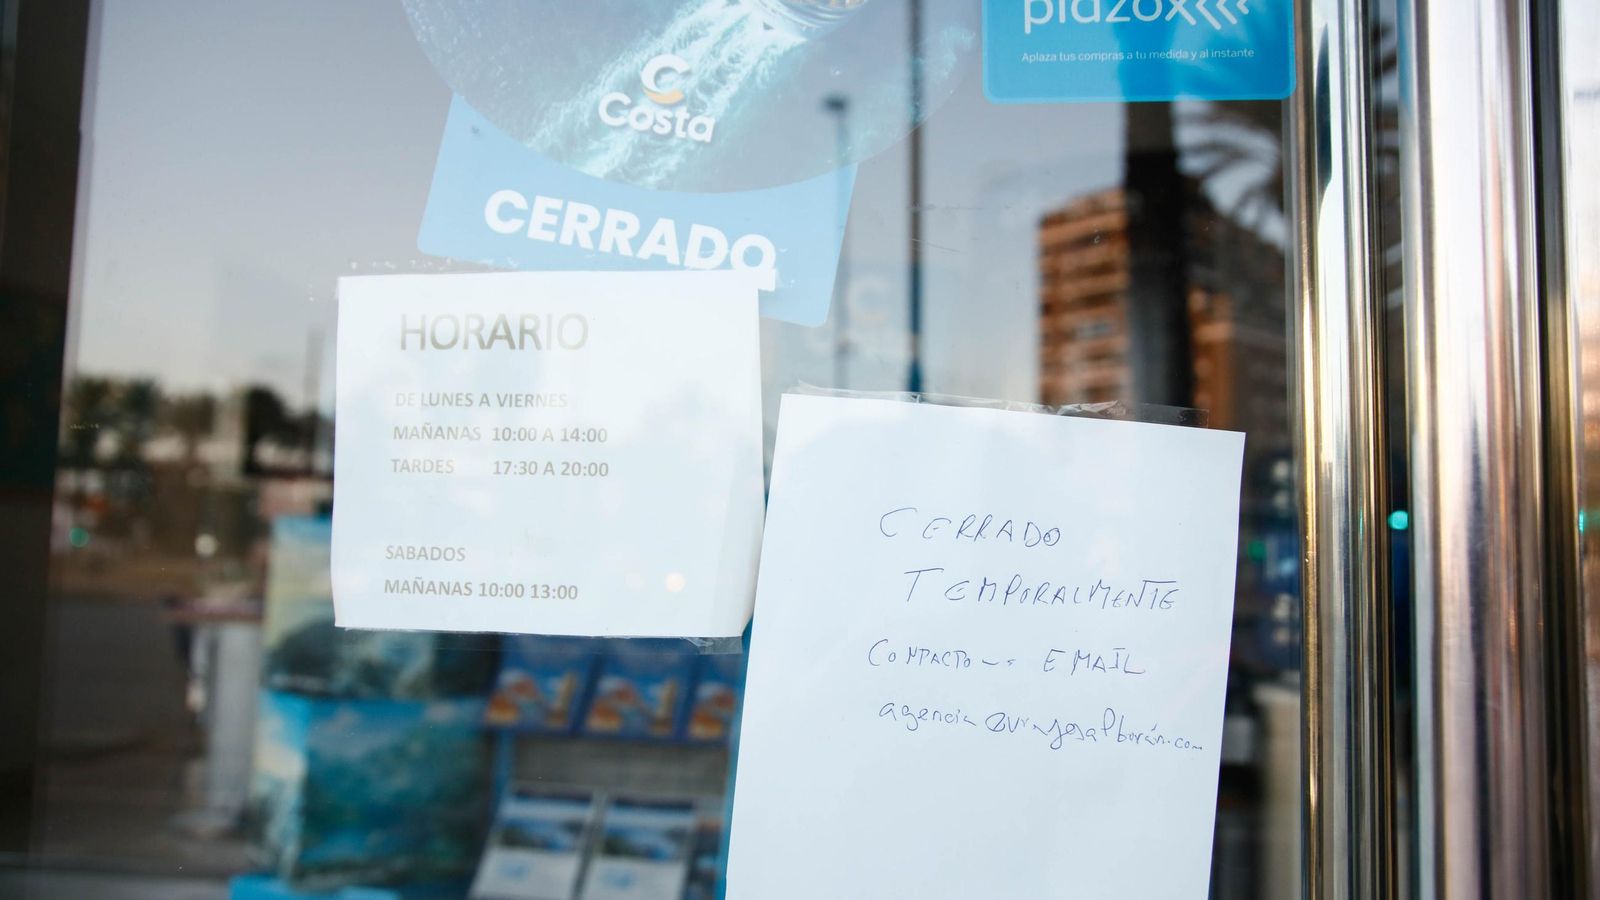 plazox
Aplaza tus compras a tu medida y al instante
Costa
CERRADO
HORARIO
DE LUNES A VIERNES
MAÑANAS 10:00 A 14:00
TARDES 17:30 A 20:00
SABADOS
MAÑANAS 10:00 13:00
CERRADO
TEMPORALMENTE
CONTACTO --> EMAIL
agencia@viajesalborán.com